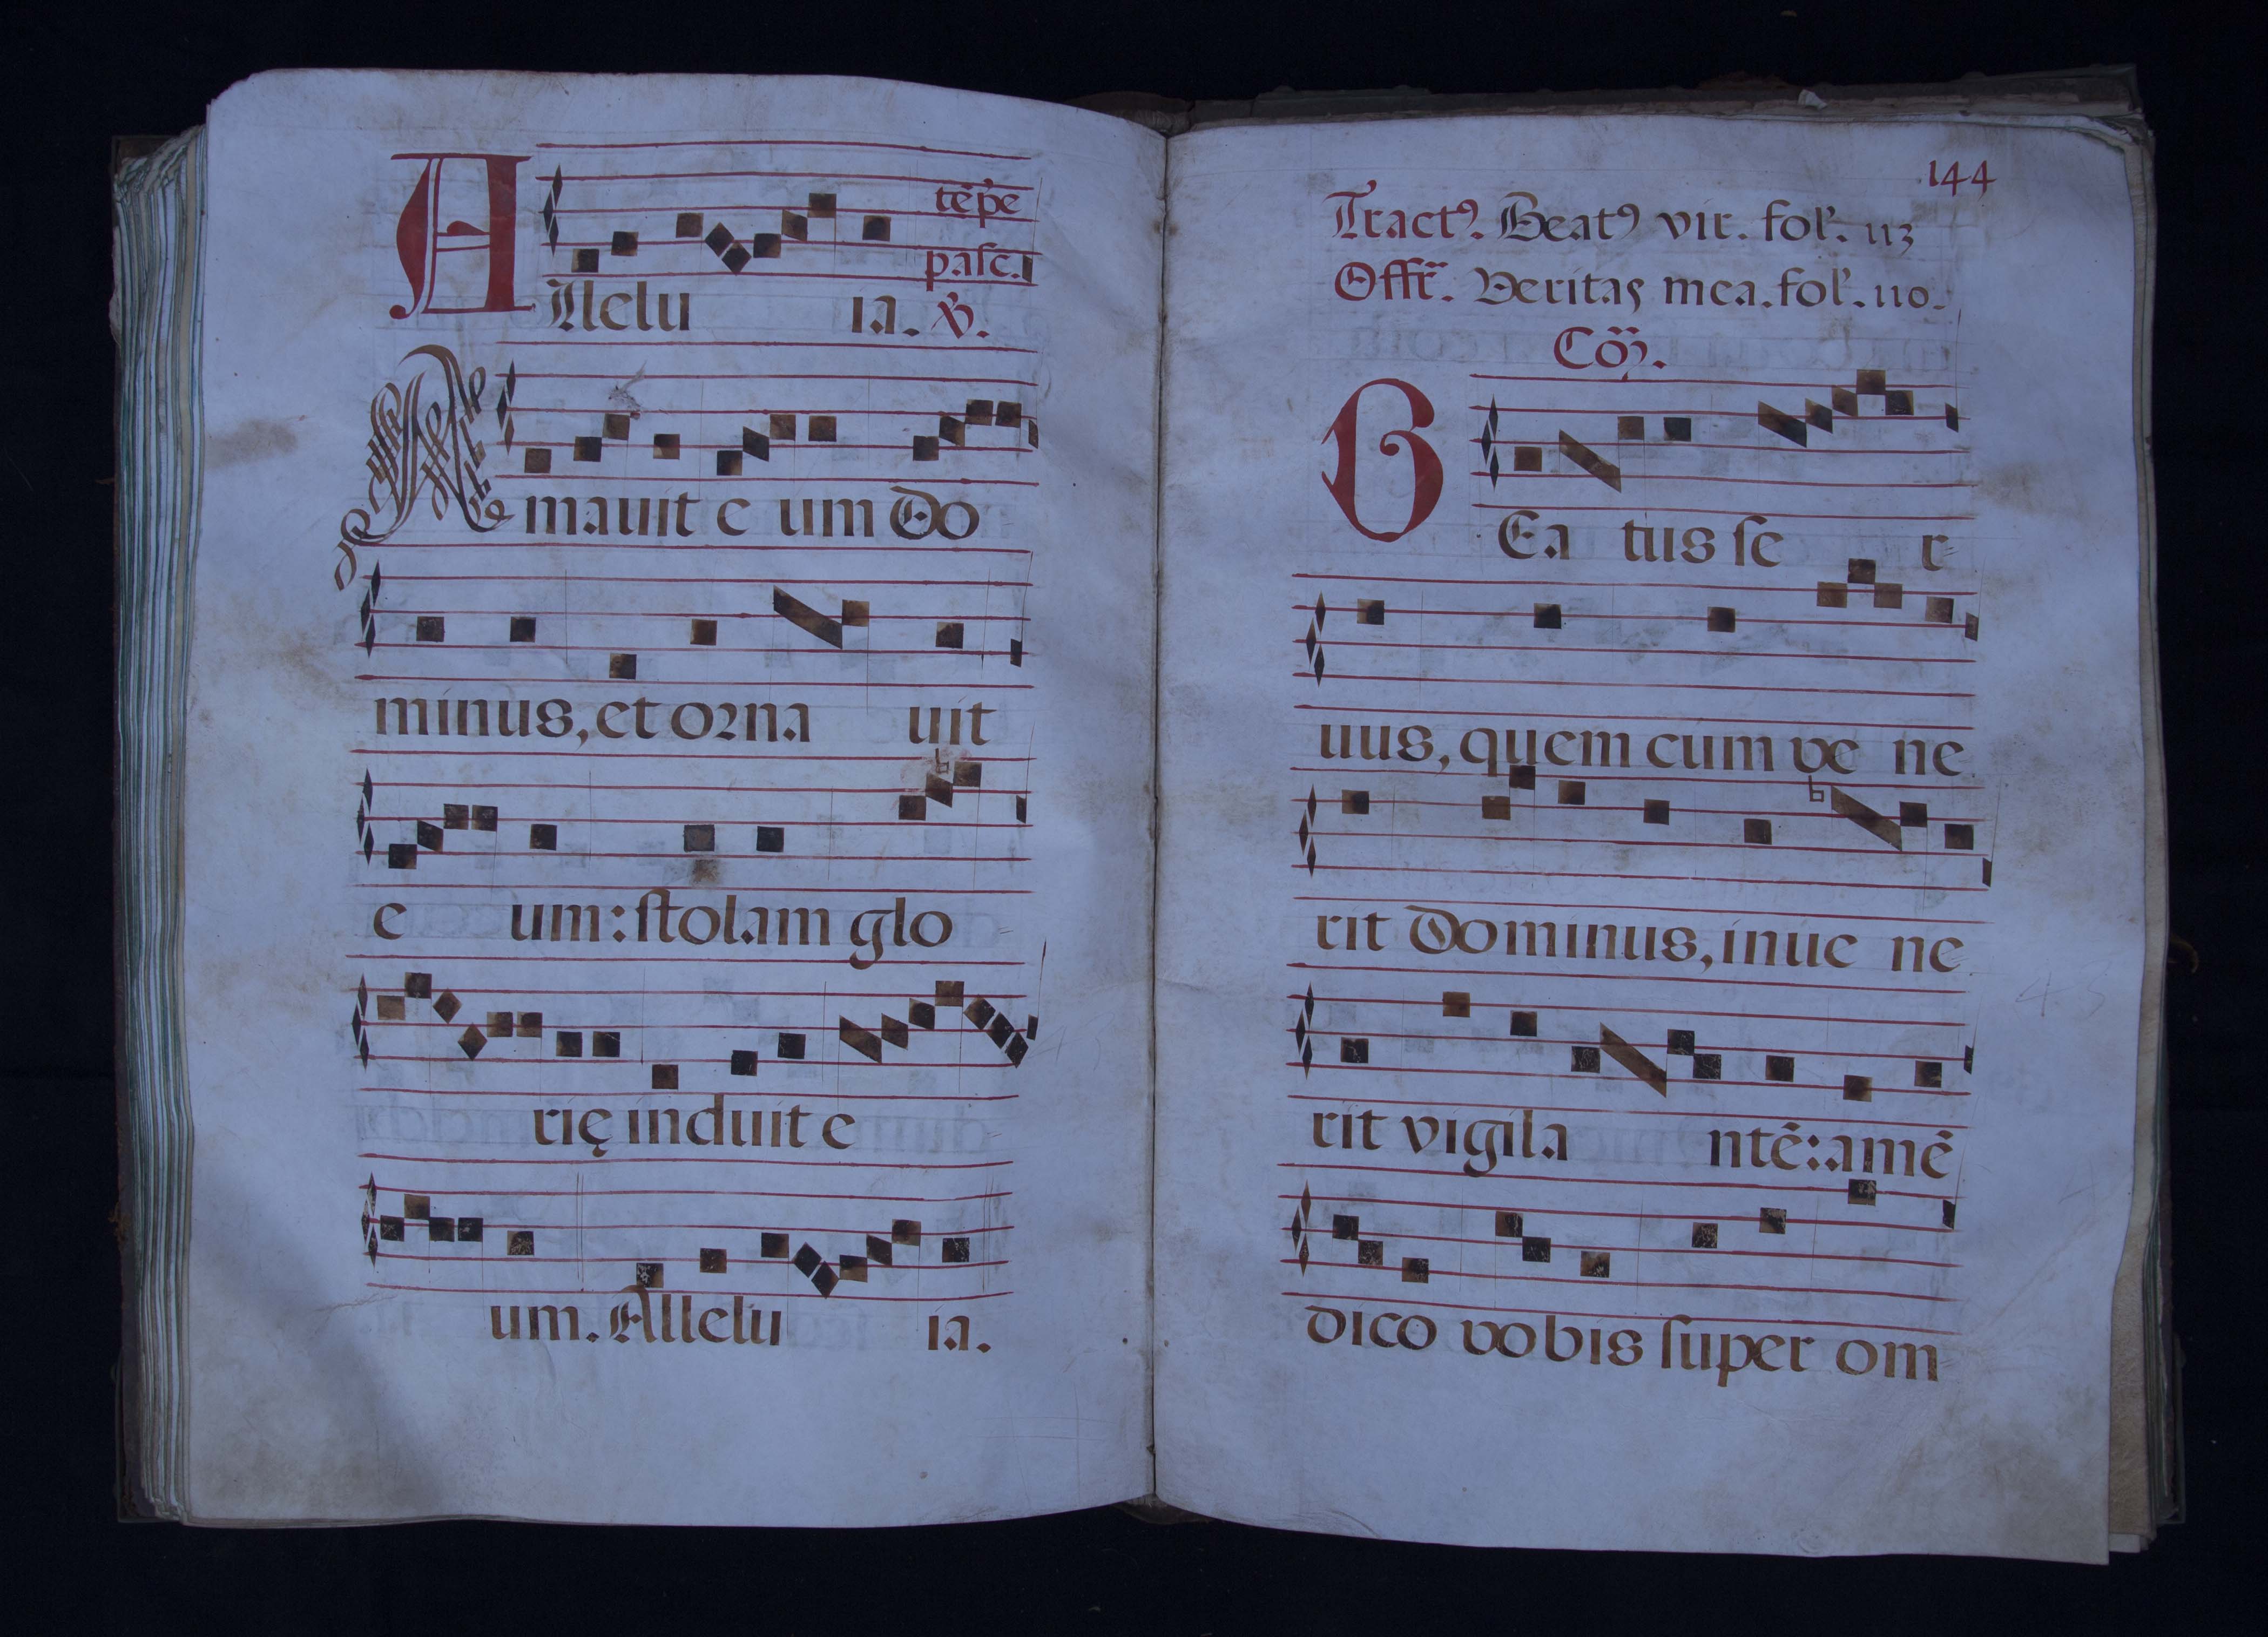 tẽpe
pasc.
Allelu ia. ℣.
Amauit e um Do
minus, et orna uit
e um: stolam glo
rię induit e
um. Allelu ia.
144
Tractꝰ. Beatꝰ vir. fol. 113
Offr̃. Veritas mea. fol. 110.
Cõ.
BEa tus se r
uus, quem cum ve ne
rit Dominus, inue ne
rit vigila ntẽ: amẽ
dico vobis super om